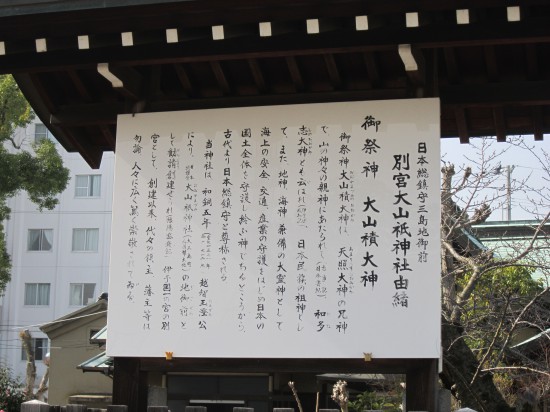 日本総鎮守三島地御前
別宮大山祇神社由緒
御祭神 大山積大神
御祭神大山積大神は、天照大神の兄神
で、山の神々の親神にあたられ
和多
志大神とも云はれ
日本民族の祖神とし
て、また、地神、海神兼備の大霊神として
海上の安全、交通、産業の守護をはじめ日本の
国土全体を守護し給ふ神であるところから、
古代より日本総鎮守と尊称され
当神社は、和銅五年
越智玉澄公
により、
大山祇神社
の地御前と
して勧請創建せられ
伊予国一の宮の別
宮として、創建以来、代々の領主、藩主等は
勿論、人々に広く篤く崇敬されてゐる